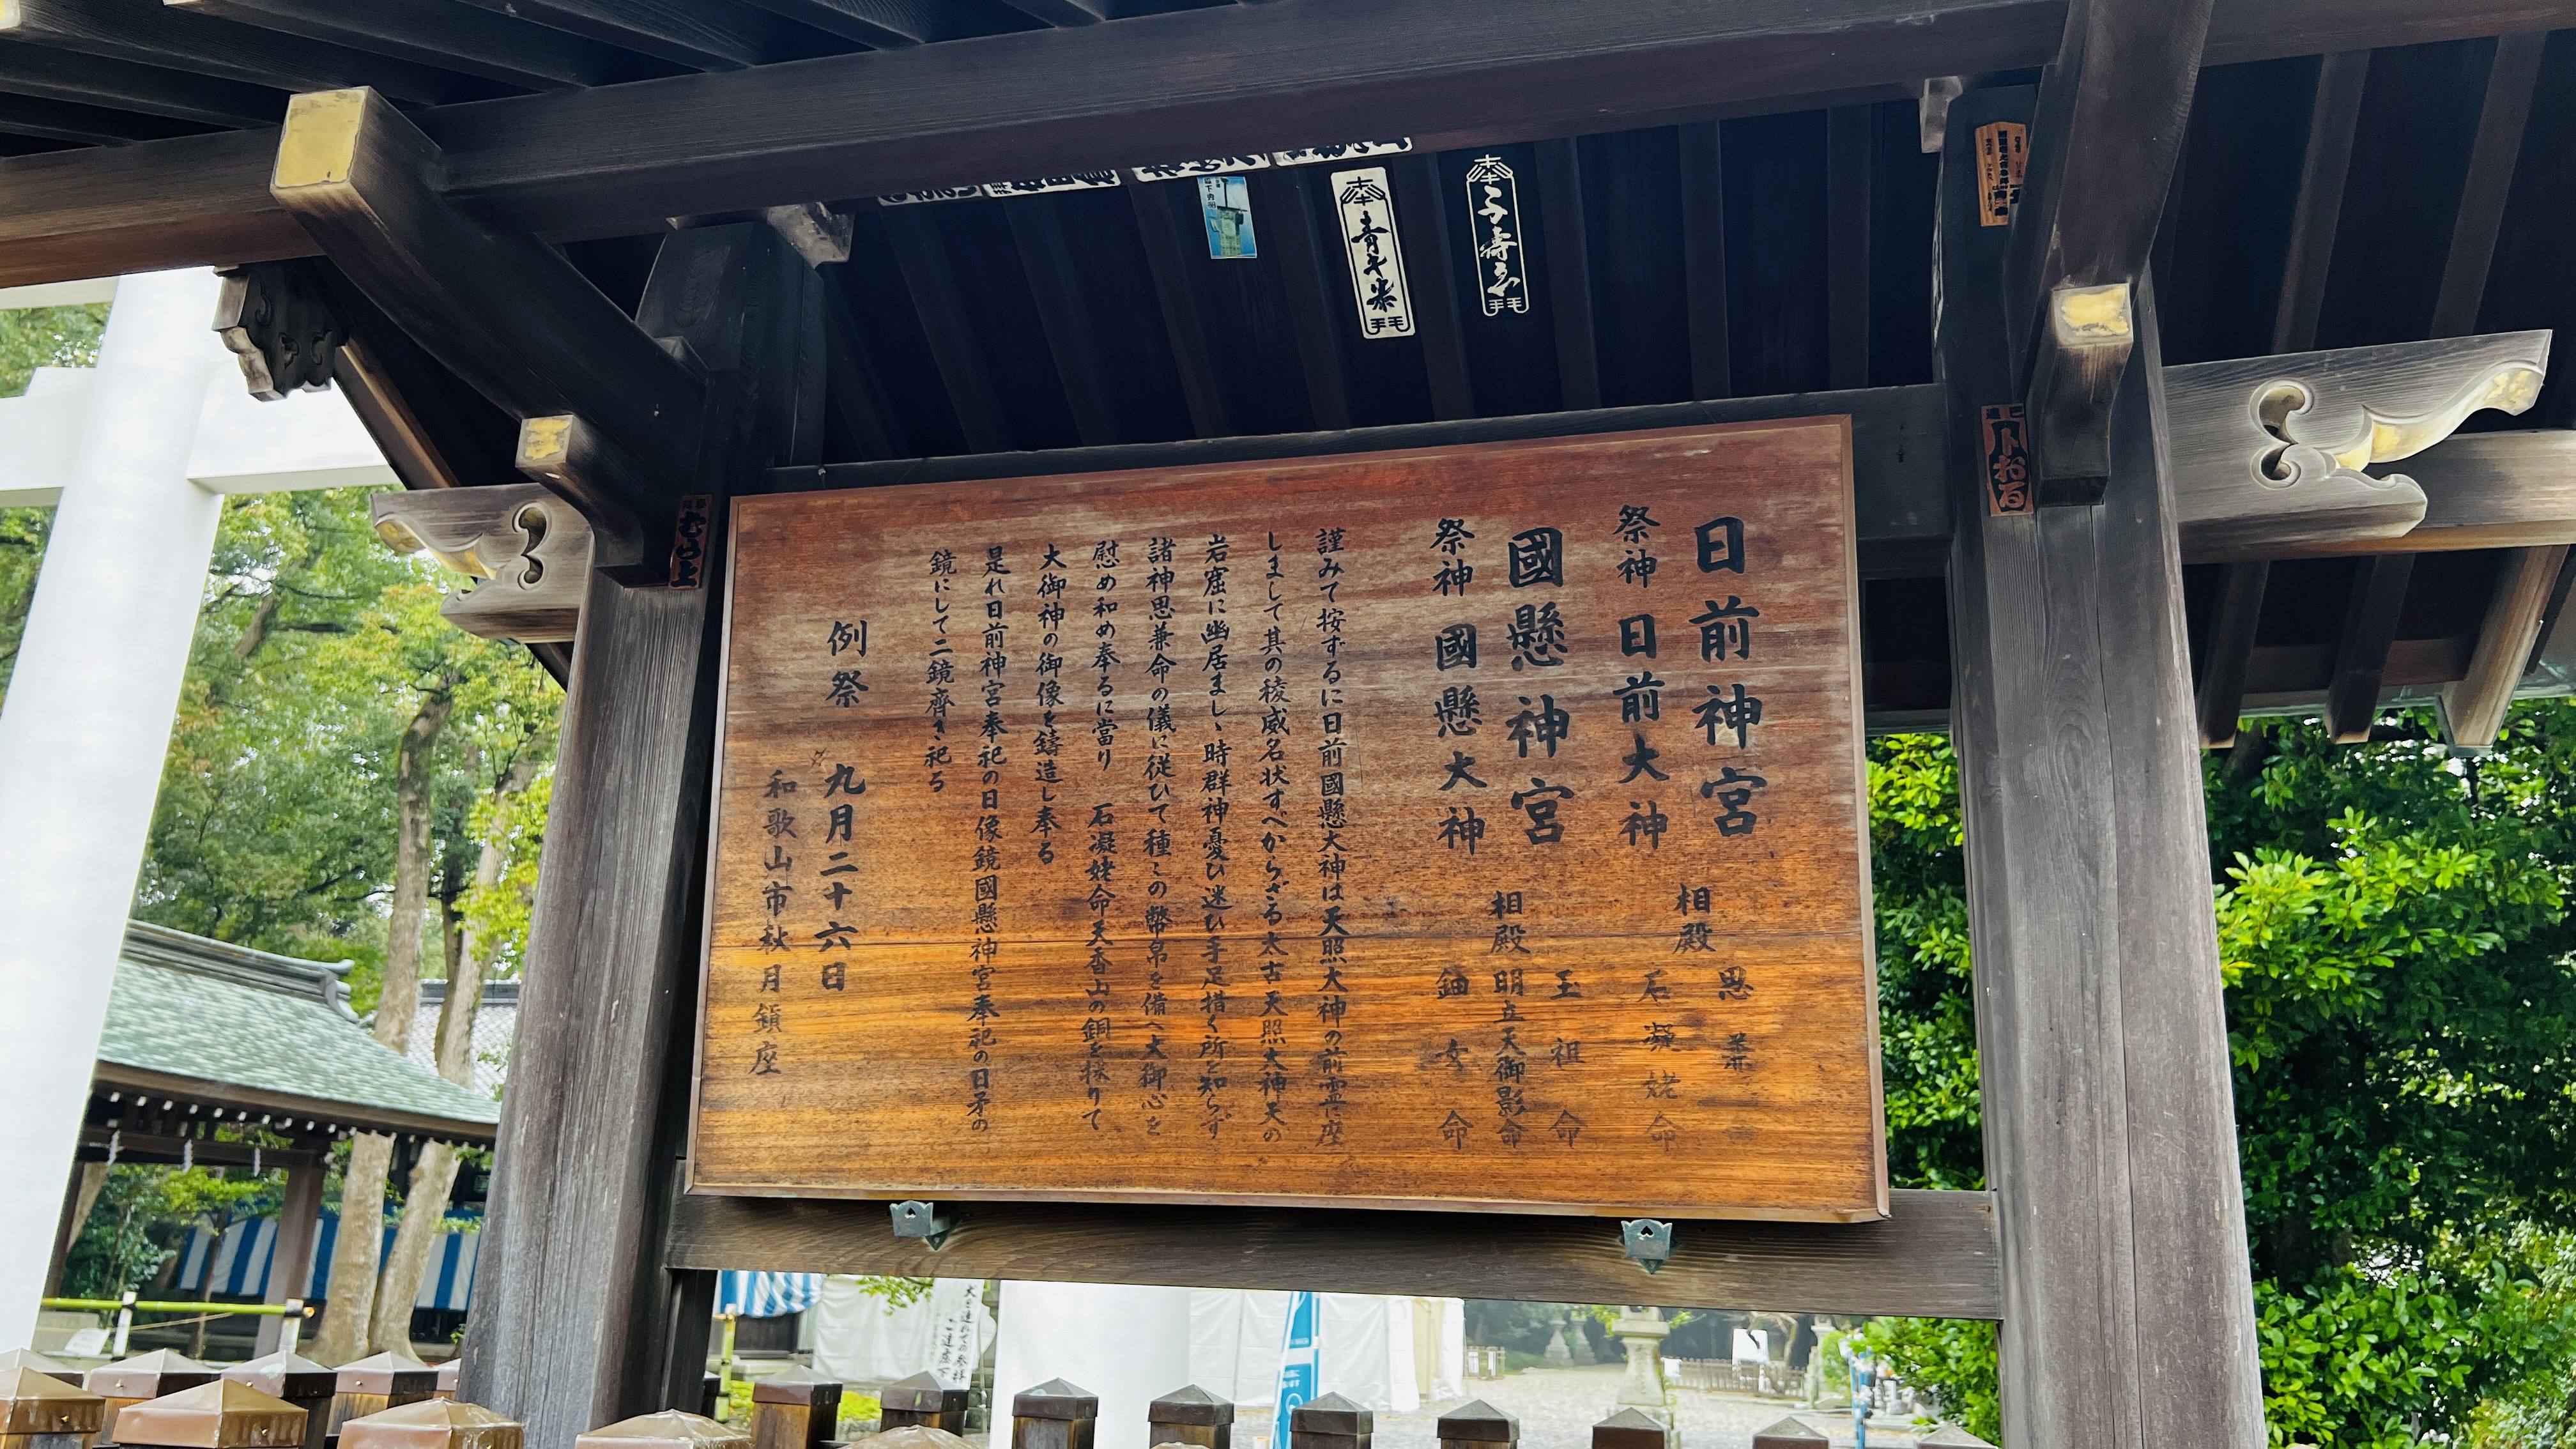 日前神宮
祭神 日前大神
相殿
思兼命
石凝姥命
國懸神宮
祭神 國懸大神
相殿
玉祖命
明立天御影命
鈿女命
謹みて按ずるに日前國懸大神は天照大神の前霊に座
しまして其の稜威名状すべからざる太古天照大神天の
岩窟に幽居ましゝ時群神憂ひ迷ひ手足措く所を知らず
諸神思兼命の儀に従ひて種々の幣帛を備へ大御心を
慰め和め奉るに當り 石凝姥命天香山の銅を採りて
大御神の御像を鑄造し奉る
是れ日前神宮奉祀の日像鏡國懸神宮奉祀の日矛の
鏡にして二鏡齊き祀る
例祭 九月二十六日
和歌山市秋月鎮座
奉
拜
奉
拜
むら上